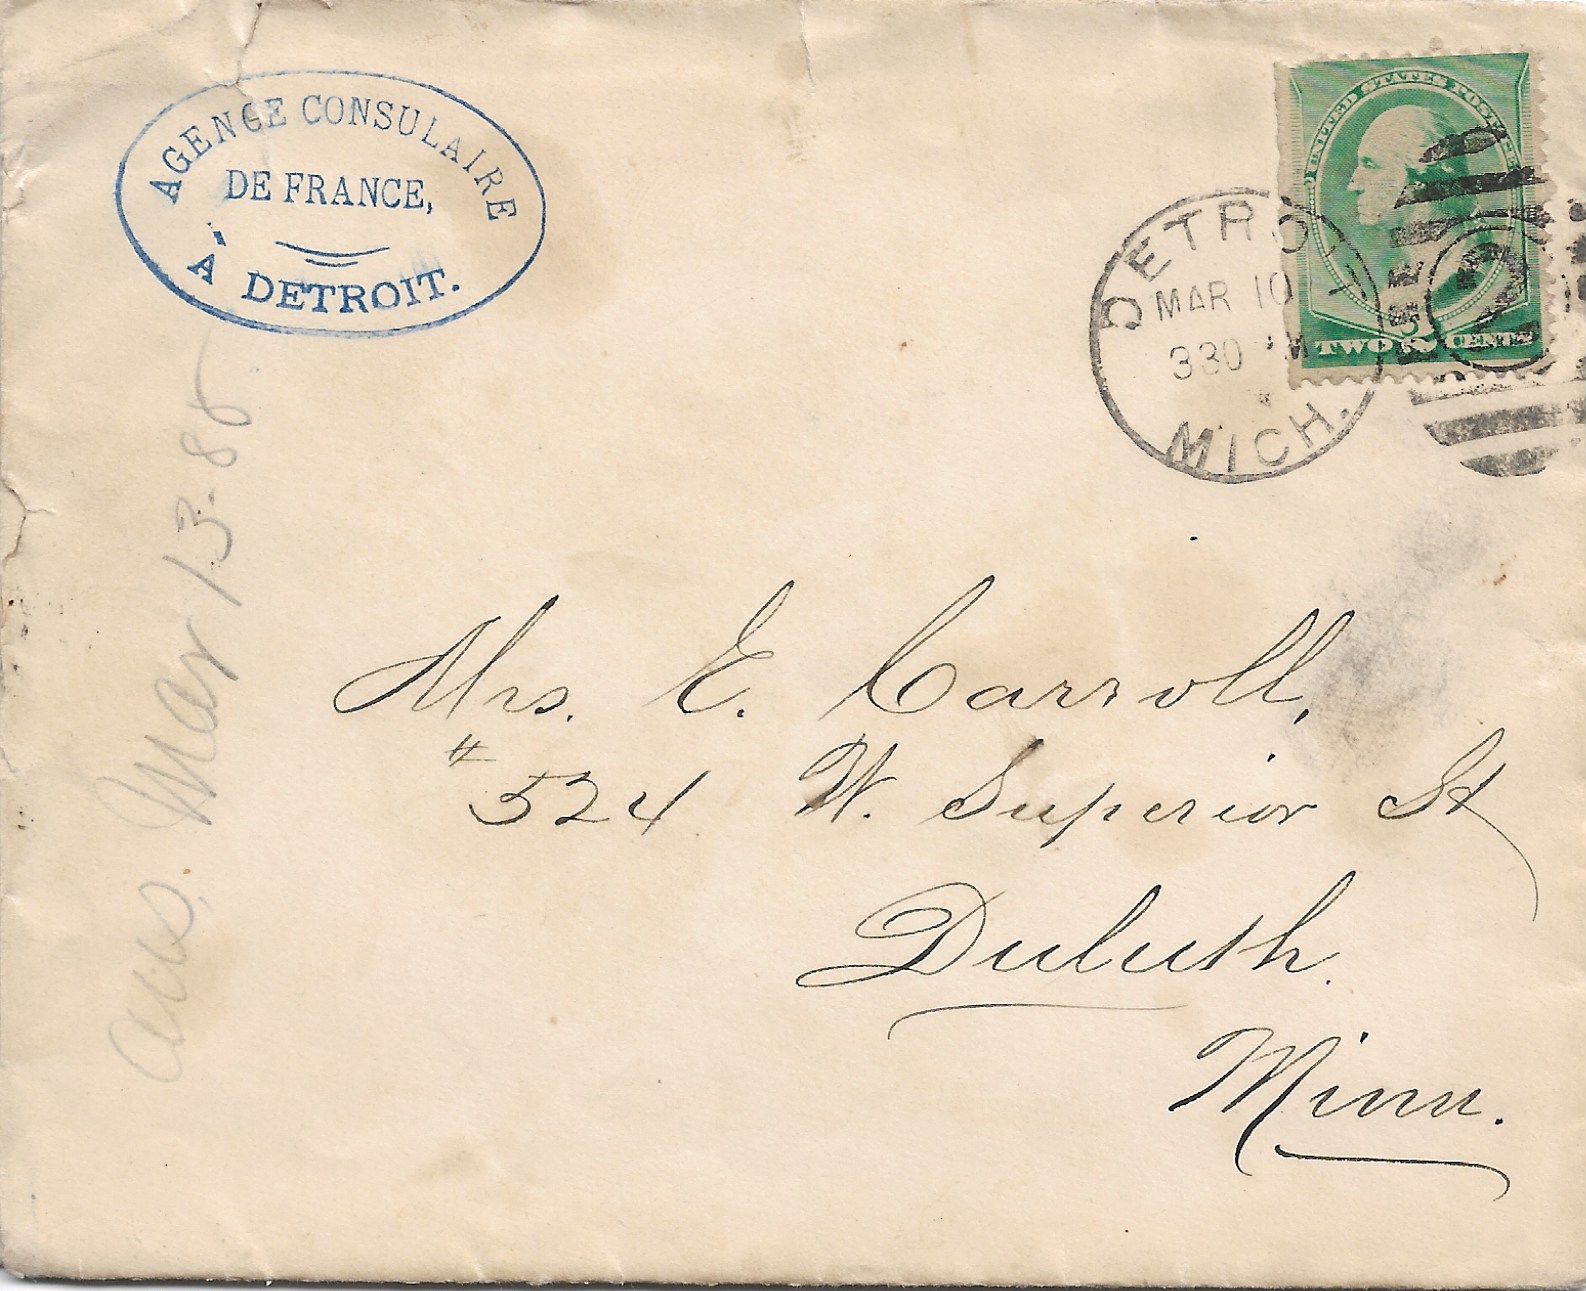 AGENCE CONSULAIRE
DE FRANCE,
À DETROIT.
UNITED STATES POSTAGE
TWO 2 CENTS
DETROIT
MAR 10
330 PM
MICH.
2
Mrs. E. Carroll,
# 524 W. Superior St
Duluth.
Minn.
ans. Mar 13-88